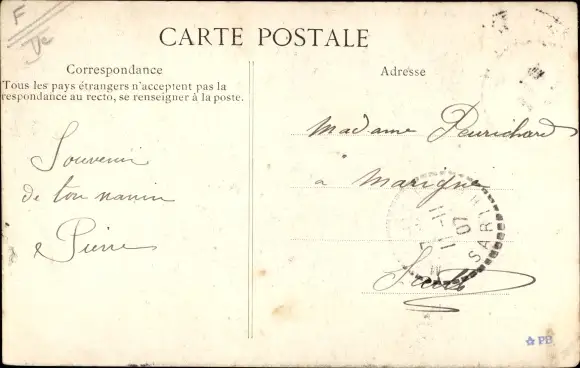 F
CARTE POSTALE
Correspondance
Tous les pays étrangers n'acceptent pas la
respondance au recto, se renseigner à la poste.
Souvenir
de ton
& Pierre
Adresse
Madame Peurichard
à Marigné
Sarthe
11
07
SAR
PB